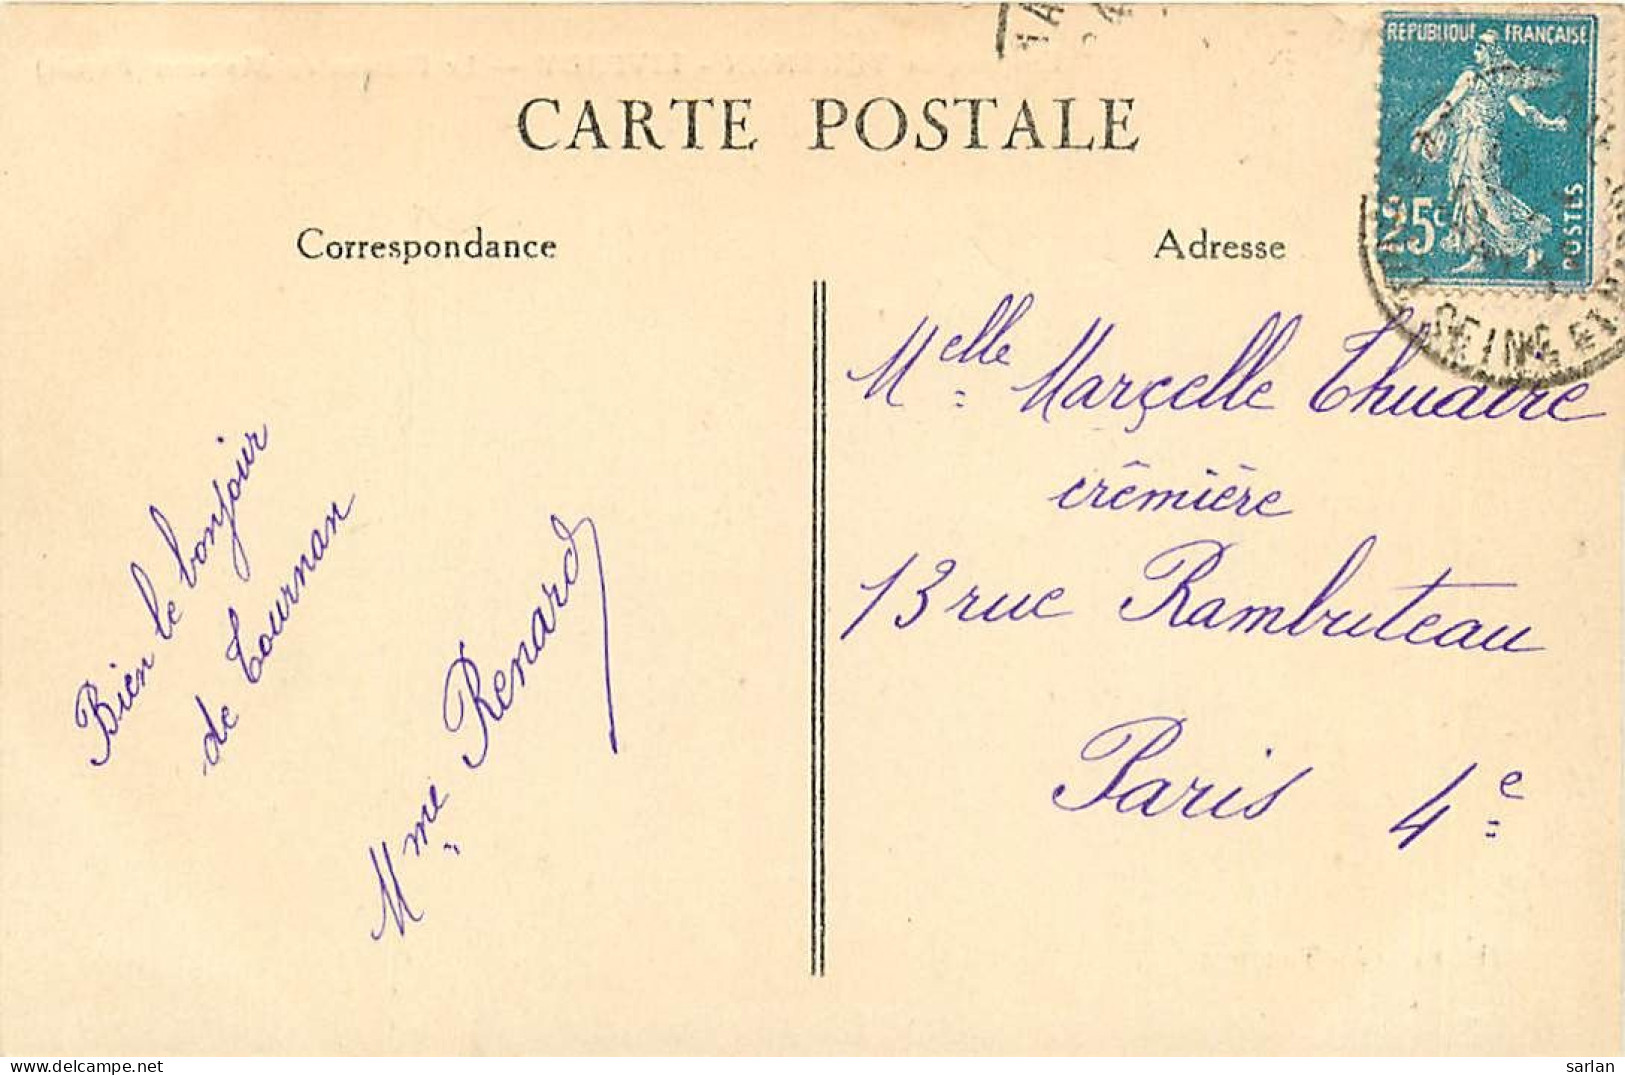 CARTE POSTALE
REPUBLIQUE FRANÇAISE
25c
POSTES
SEINE ET
Correspondance
Adresse
Bien le bonjour
de Tournan
Mme Renard
Melle Marçelle Thuaire
crêmière
13 rue Rambuteau
Paris 4e
sarlan